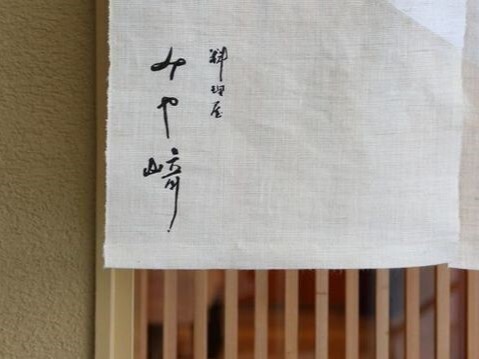 料理屋
みや﨑